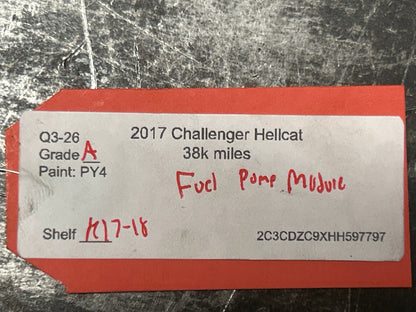 Q3-26
2017 Challenger Hellcat
Grade A
38k miles
Paint: PY4
Fuel Pump Module
Shelf K17-18
2C3CDZC9XHH597797